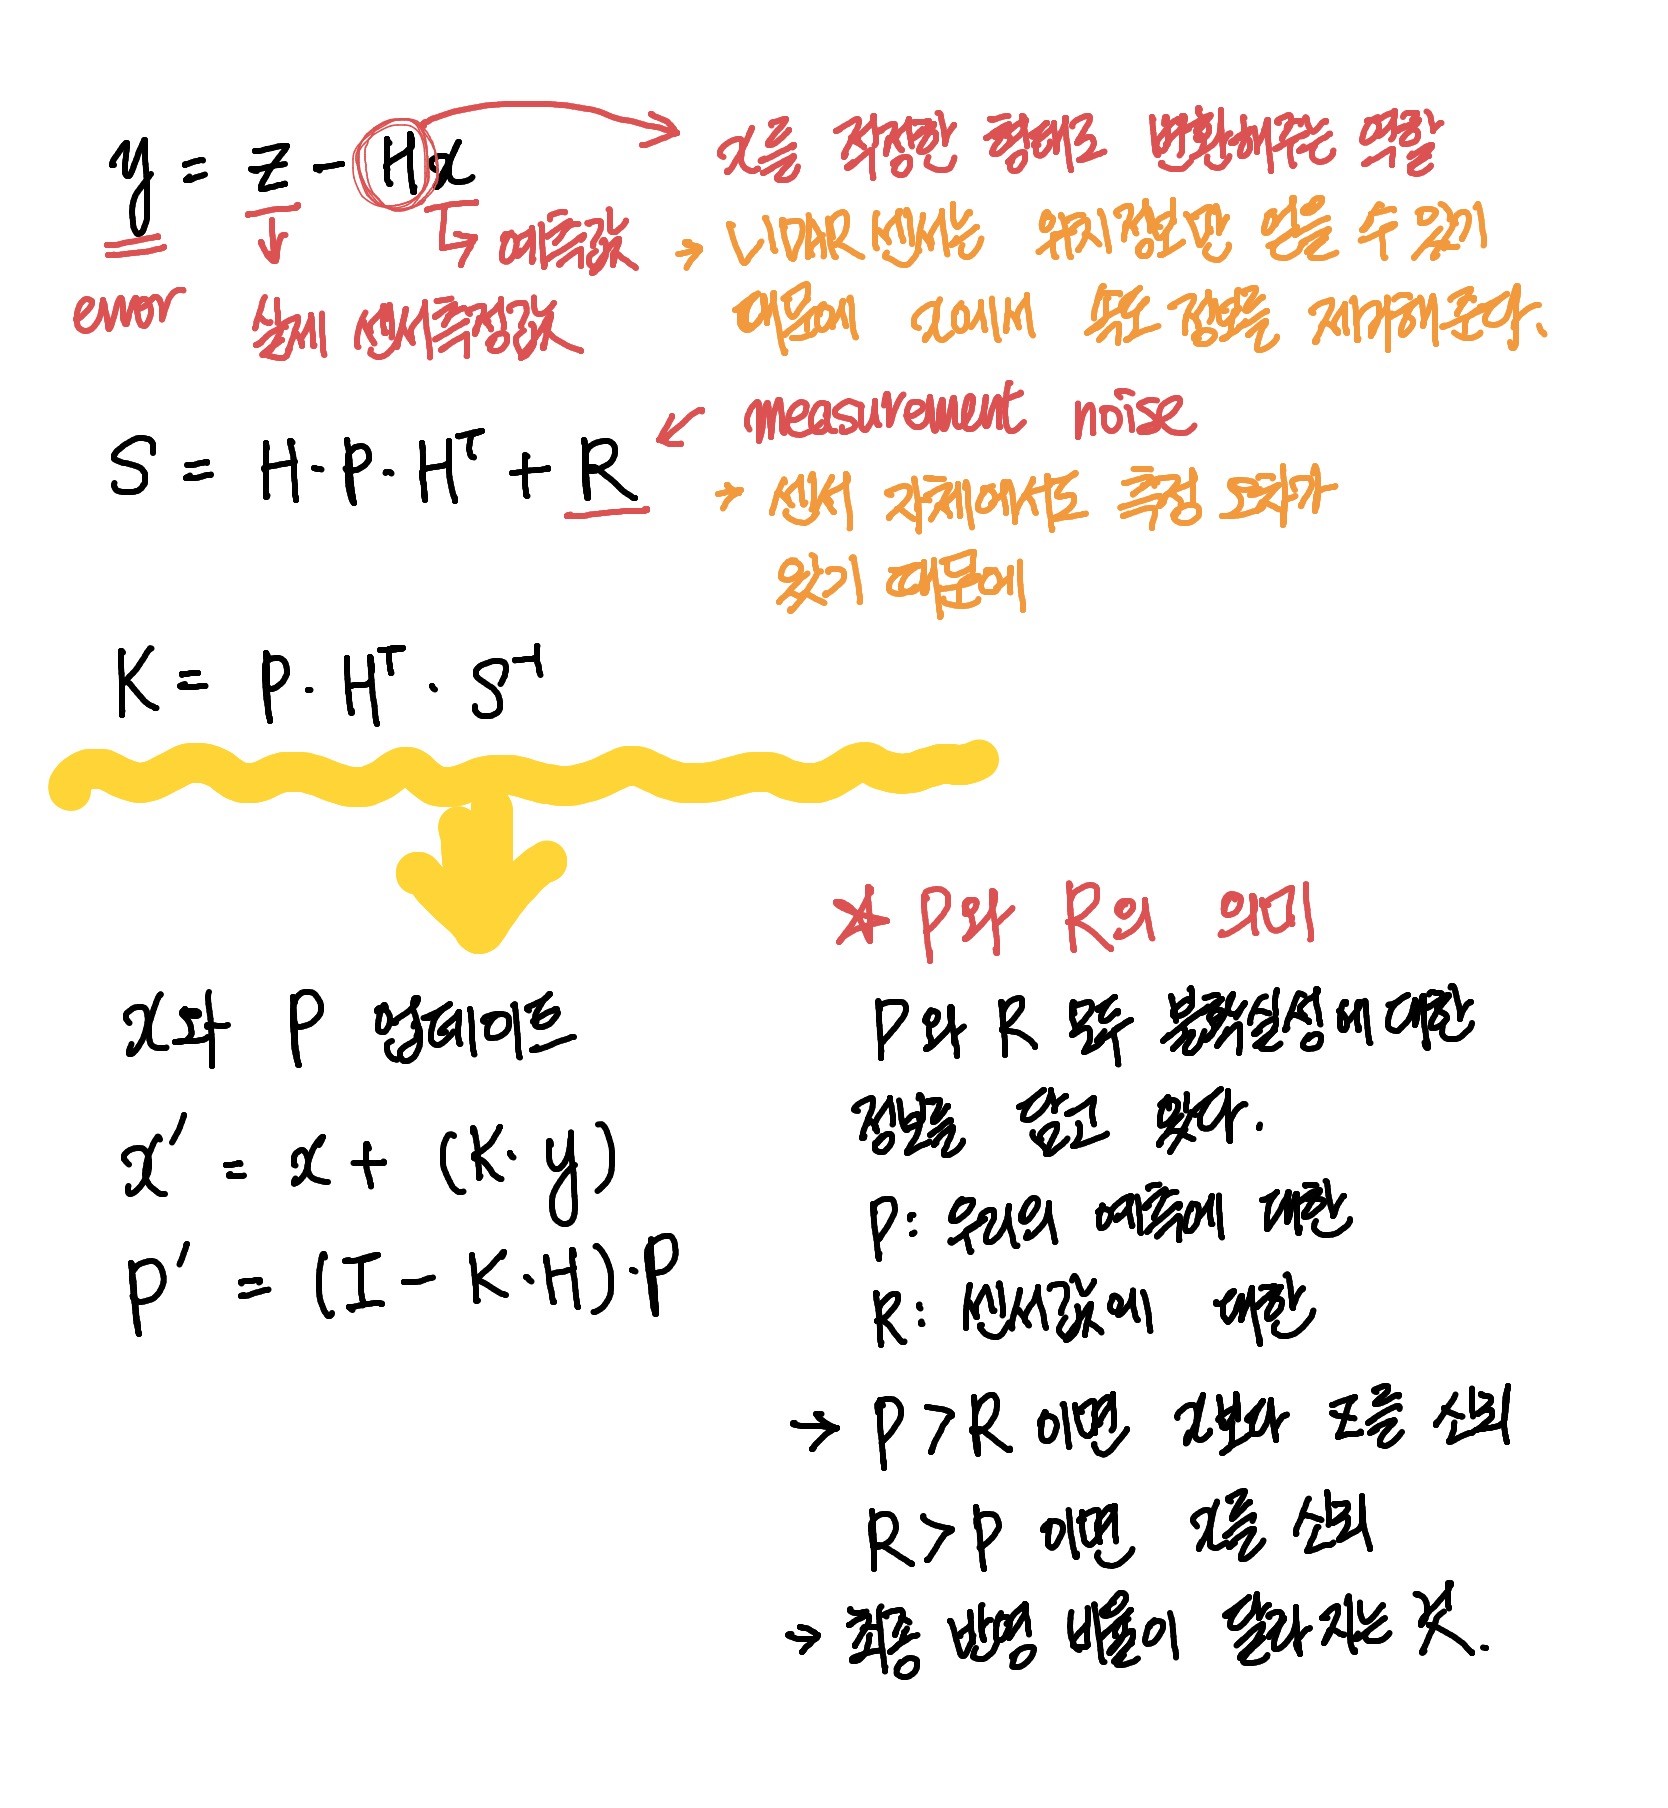 y = z - Hx
x를 적정한 형태로 변환해주는 역할
예측값
→ LIDAR 센서는 위치정보만 얻을 수 있기
때문에 x에서 속도 정보를 제거해준다.
error 실제 센서측정값
S = H · P · Hᵀ + R
← measurement noise
→ 센서 자체에서도 측정 오차가
있기 때문에
K = P · Hᵀ · S⁻¹
x와 P 업데이트
x' = x + (K · y)
P' = (I - K · H) · P
☆ P와 R의 의미
P와 R 모두 불확실성에 대한
정보를 담고 있다.
P: 우리의 예측에 대한
R: 센서값에 대한
→ P > R 이면 x보다 z를 신뢰
R > P 이면 x를 신뢰
→ 최종 반영 비율이 달라지는 것.